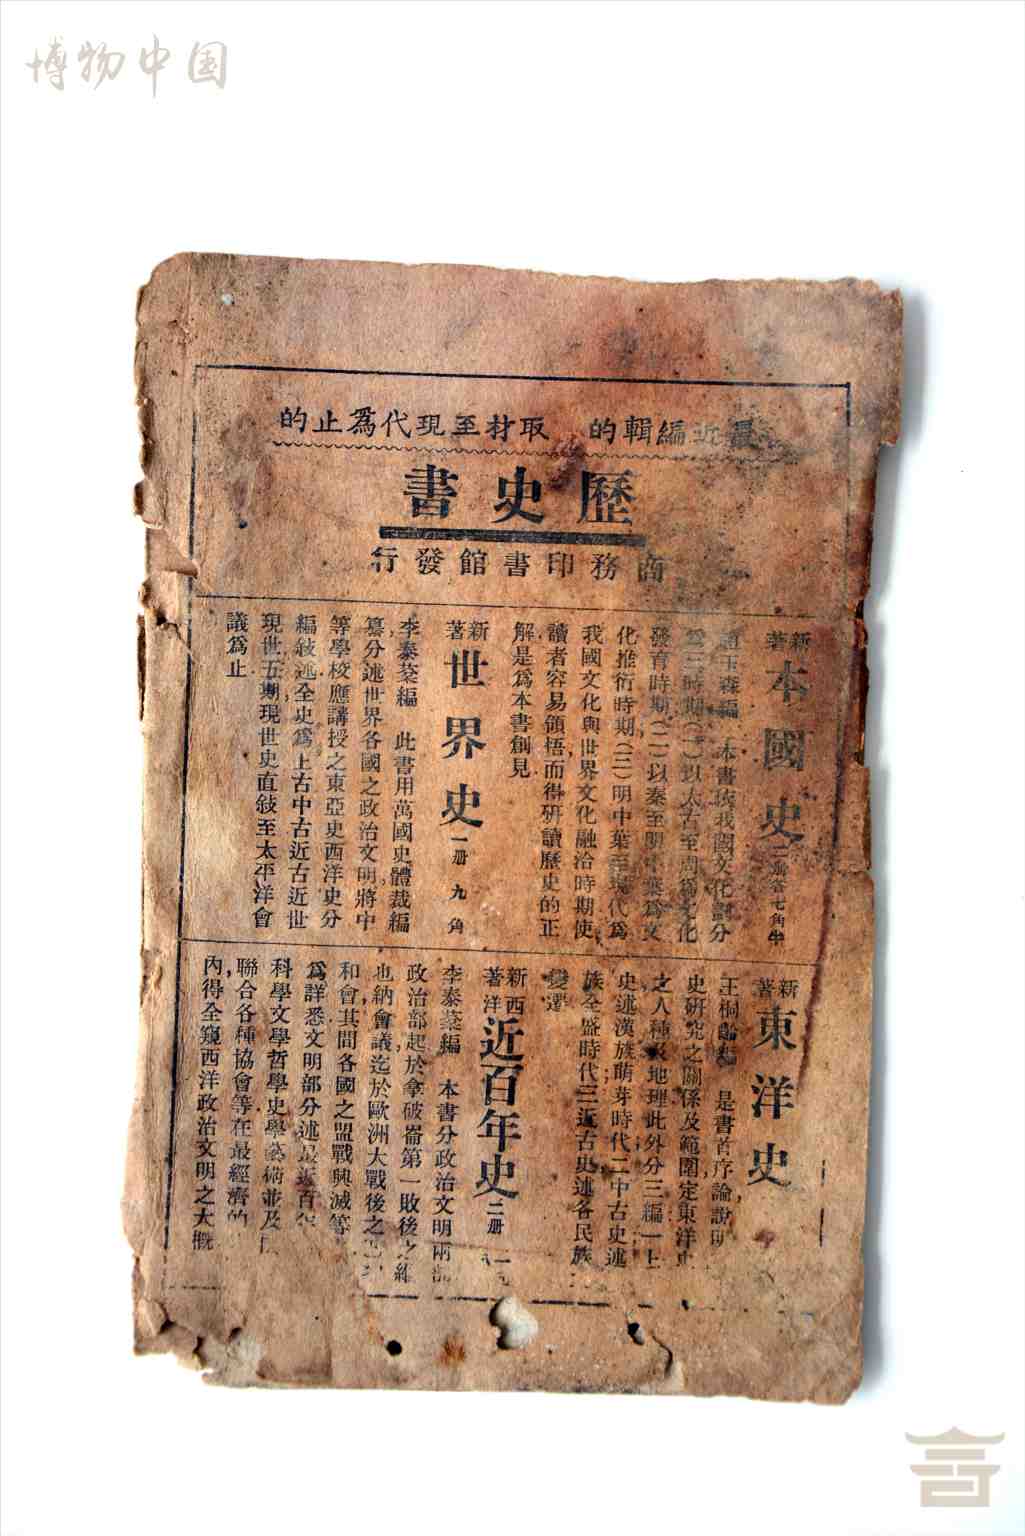 博物中国
最近編輯的 取材至現代爲止的
歷史書
商務印書館發行
新著 本國史 二册各七角半
趙玉森編 本書按我國文化劃分
爲三時期(一)以太古至周爲文化
發育時期(二)以秦至明中葉爲文
化推衍時期(三)明中葉至現代爲
我國文化與世界文化融洽時期使
讀者容易領悟而得研讀歷史的正
解是爲本書創見
新著 世界史 一册 九角
李泰棻編 此書用萬國史體裁編
纂分述世界各國之政治文明將中
等學校應講授之東亞史西洋史分
編敍述全史爲上古中古近古近世
現世五期現世史直敍至太平洋會
議爲止
新著 東洋史
王桐齡編 是書首序論說明
史研究之關係及範圍定東洋史
之人種及地理此外分三編一上
史述漢族萌芽時代二中古史述
族全盛時代三近古史述各民族
變遷
新著西洋 近百年史 二册 一元
李泰棻編 本書分政治文明兩部
政治部起於拿破崙第一敗後之維
也納會議迄於歐洲大戰後之
和會其間各國之盟戰興滅等
爲詳悉文明部分述最近百年
科學文學哲學史學藝術並及
聯合各種協會等在最經濟的
內得全窺西洋政治文明之大概